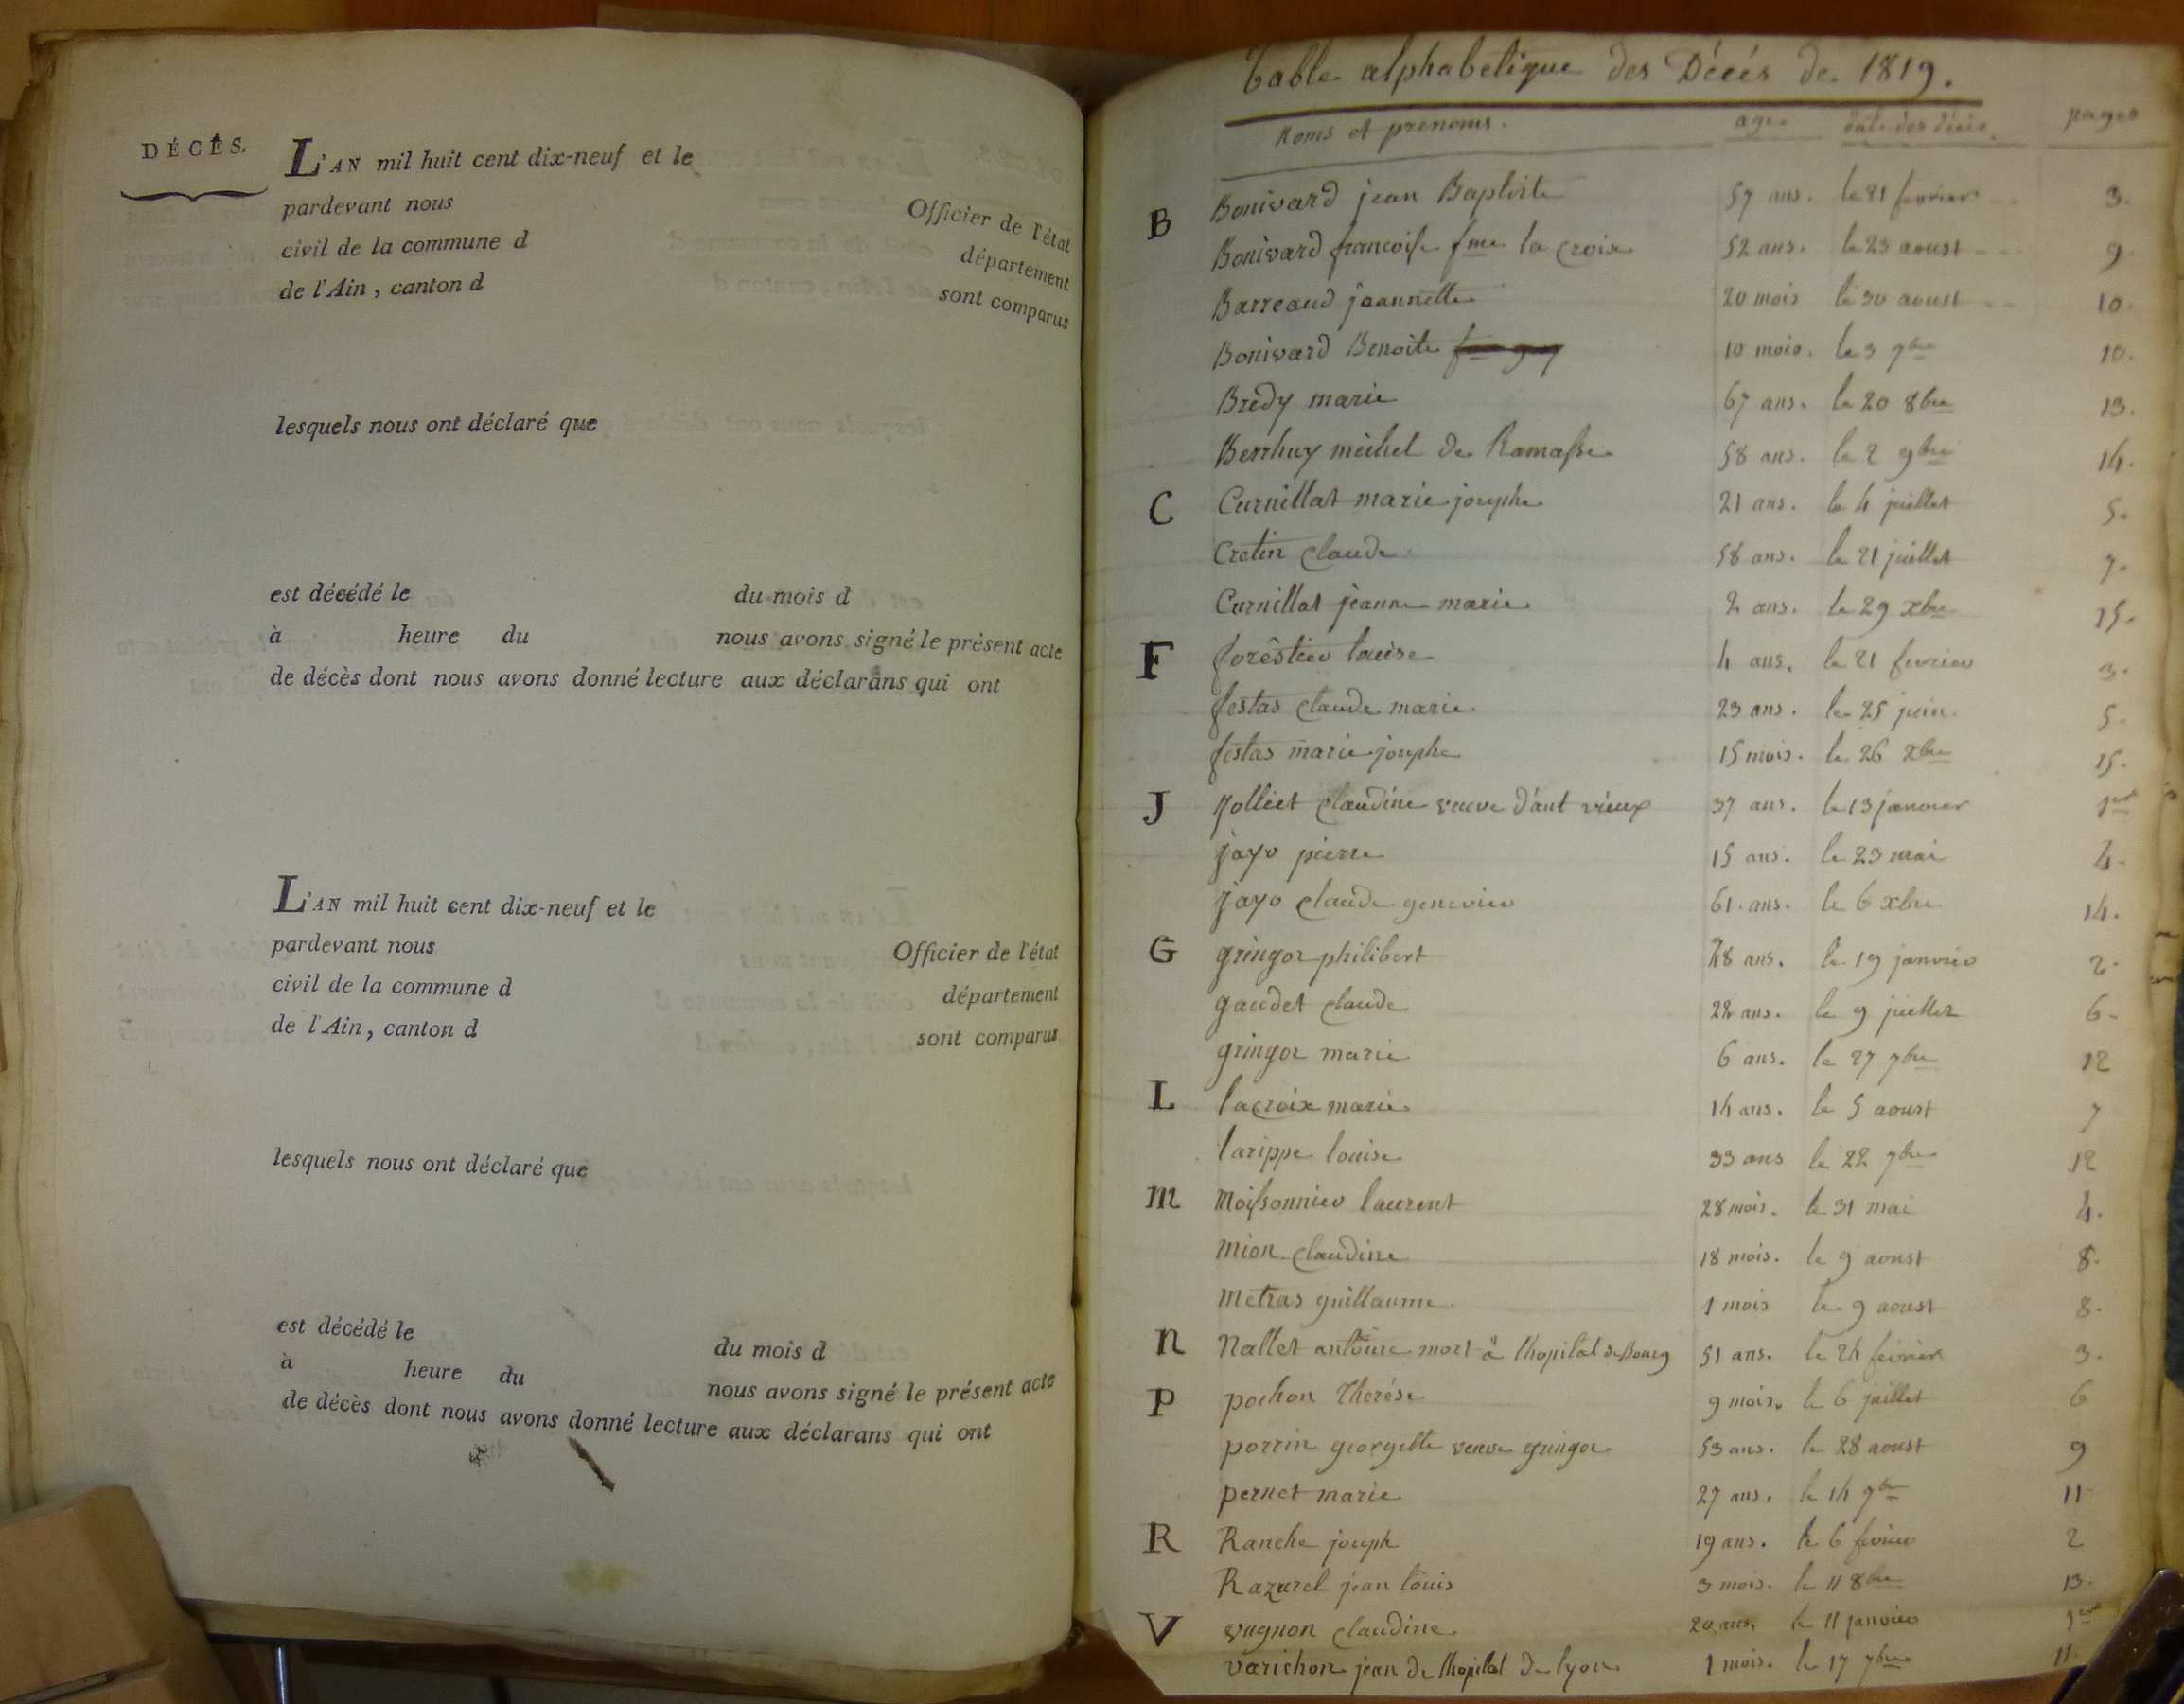 DÉCÈS.
L'AN mil huit cent dix-neuf et le
pardevant nous Officier de l'état
civil de la commune d département
de l'Ain, canton d sont comparus
lesquels nous ont déclaré que
est décédé le du mois d
à heure du nous avons signé le présent acte
de décès dont nous avons donné lecture aux déclarans qui ont
L'AN mil huit cent dix-neuf et le
pardevant nous Officier de l'état
civil de la commune d département
de l'Ain, canton d sont comparus
lesquels nous ont déclaré que
est décédé le du mois d
à heure du nous avons signé le présent acte
de décès dont nous avons donné lecture aux déclarans qui ont
Table alphabetique des Décés de 1819.
Noms et prenoms. age date des décès. pages
B Bonivard jean Baptiste 57 ans. le 21 fevrier 3.
Bonivard francoise fme la croix 52 ans. le 23 aoust 9.
Barreaud jeannette 20 mois le 30 aoust 10.
Bonivard Benoite 10 mois. le 3 7bre 10.
Bredy marie 67 ans. le 20 8bre 13.
Berrhuy michel de Ramasse 58 ans. le 2 9bre 14.
C Curnillat marie josephe 21 ans. le 4 juillet 5.
Cretin claude 58 ans. le 21 juillet 7.
Curnillat jeanne marie 2 ans. le 29 xbre 15.
F forêstier louise 4 ans. le 21 fevrier 3.
festas claude marie 23 ans. le 25 juin 5.
festas marie josephe 15 mois. le 26 xbre 15.
J Jolliet claudine veuve d'ant vieux 37 ans. le 13 janvier 1er
jayo pierre 15 ans. le 23 mai 4.
jayo claude genevieve 61. ans. le 6 xbre 14.
G gringoz philibert 28 ans. le 19 janvier 2.
gaudet claude 22 ans. le 9 juillet 6.
gringoz marie 6 ans. le 27 7bre 12
L lacroix marie 14 ans. le 5 aoust 7
larippe louise 33 ans le 22 7bre 12
M Moissonnier laurent 28 mois. le 31 mai 4.
mion claudine 18 mois. le 9 aoust 8.
metras guillaume 1 mois le 9 aoust 8.
N Nallet antoine mort à lhopital de Bourg 51 ans. le 24 fevrier 3.
P pochon Therése 9 mois. le 6 juillet 6
porrin georgette veuve gringoz 53 ans. le 28 aoust 9
pernet marie 27 ans. le 14 7bre 11
R Ranche joseph 19 ans. le 6 fevrier 2
Razurel jean louis 3 mois. le 11 8bre 13.
V vugnon claudine 20 ans. le 11 janvier 1er
varichon jean de lhopital de lyon 1 mois. le 17 7bre 11.